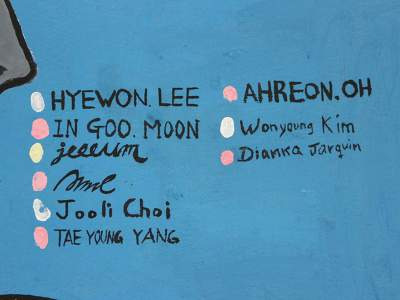 HYEWON. LEE
IN GOO. MOON
jeeeum
Jooli Choi
TAE YOUNG YANG
AHREON. OH
Wonyoung Kim
Dianka Jarquin